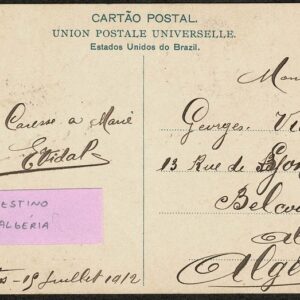 CARTÃO POSTAL.
UNION POSTALE UNIVERSELLE.
Estados Unidos do Brazil.
Caresse a Marié
EVidal
ESTINO
ALGÉRIA
15 Juillet 1912
Mon
Georges Vi
13 Rue de Lyon
Belco
Al
Alge